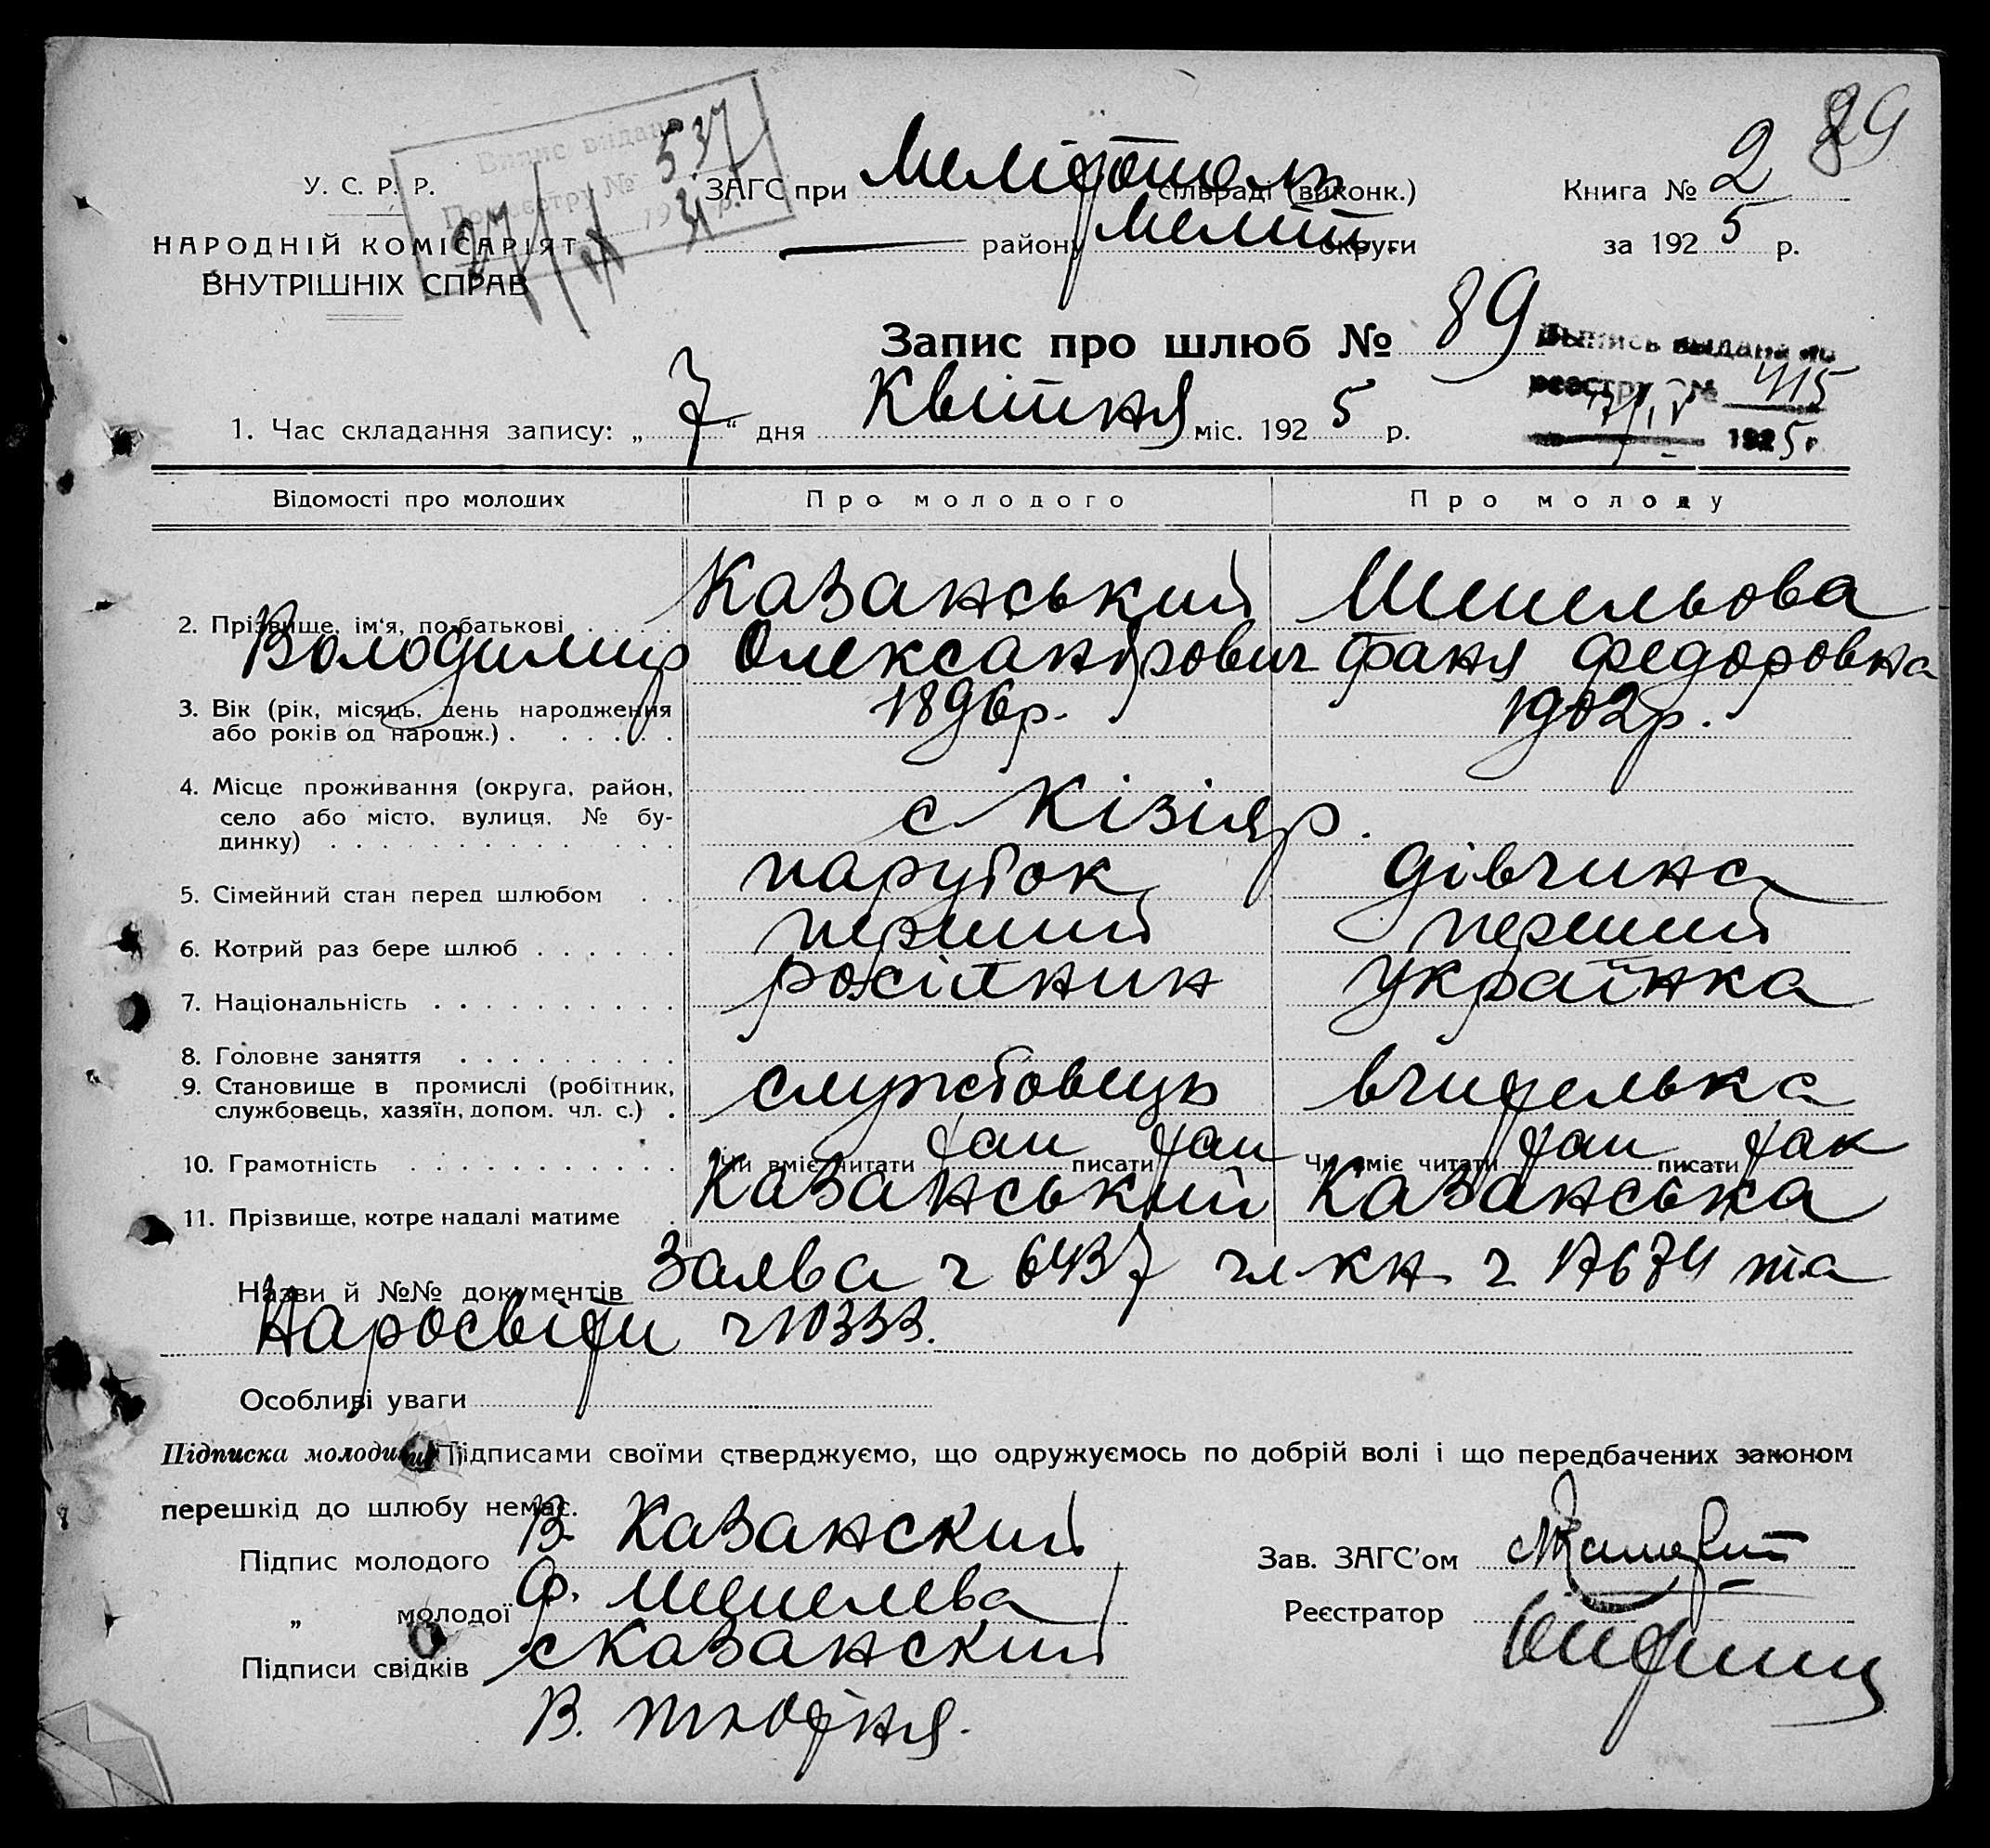 89
Випис видано
По реєстру № 537
27/IX 1931 р.
У. С. Р. Р.
НАРОДНІЙ КОМІСАРІЯТ
ВНУТРІШНІХ СПРАВ
ЗАГС при Мелітополь сільраді (виконк.)
району Меліт. округи
Книга № 2
за 1925 р.
Запис про шлюб № 89
Выпись выдана по
реестру № 415
1925 г.
1. Час складання запису: „ 7 “ дня Квітня міс. 1925 р.
Відомості про молодих Про молодого Про молоду
2. Прізвище, ім'я, по-батькові Казанський Шепельова
Володимир Олександрович Фаня Федоровна
3. Вік (рік, місяць, день народження 1896р. 1902р.
або років од народж.)
4. Місце проживання (округа, район,
село або місто, вулиця, № бу- с Кізіяр.
динку)
5. Сімейний стан перед шлюбом парубок дівчина
6. Котрий раз бере шлюб перший перший
7. Національність росіянин українка
8. Головне заняття
9. Становище в промислі (робітник, службовець вчителька
службовець, хазяїн, допом. чл. с.)
10. Грамотність Чи вміє читати так писати так Чи вміє читати так писати так
11. Прізвище, котре надалі матиме Казанський Казанська
Назви й №№ документів Заява ч 6437 чл кн ч 17674 та
Наросвіти ч 10333.
Особливі уваги
Підписка молодих Підписами своїми стверджуємо, що одружуємось по добрій волі і що передбачених законом
перешкід до шлюбу немає.
Підпис молодого В Казанский
„ молодої Ф. Шепелева
Підписи свідків Казанский
В.
Зав. ЗАГС'ом
Реєстратор